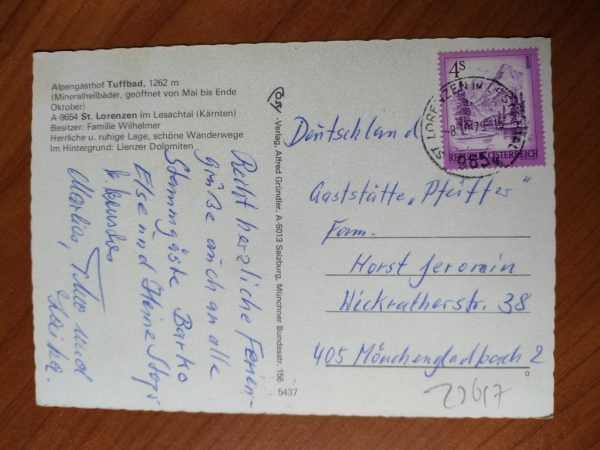 Alpengasthof Tuffbad, 1262 m
(Mineralheilbäder, geöffnet von Mai bis Ende
Oktober)
A-9654 St. Lorenzen im Lesachtal (Kärnten)
Besitzer: Familie Wilhelmer
Herrliche u. ruhige Lage, schöne Wanderwege
Im Hintergrund: Lienzer Dolomiten
Recht herzliche Ferien-
grüße auch an alle
Stammgäste Barko
Else und Heine Stops
Marlies, Theo und
Cosy -Verlag, Alfred Gründler, A-5013 Salzburg, Münchner Bundesstr. 156
5437
4S
REPUBLIK ÖSTERREICH
ST. LORENZEN IM
9654
Deutschland
Gaststätte „Pfeiffer"
Fam.
Horst Jeromin
Wickratherstr. 38
405 Mönchengladbach 2
29617